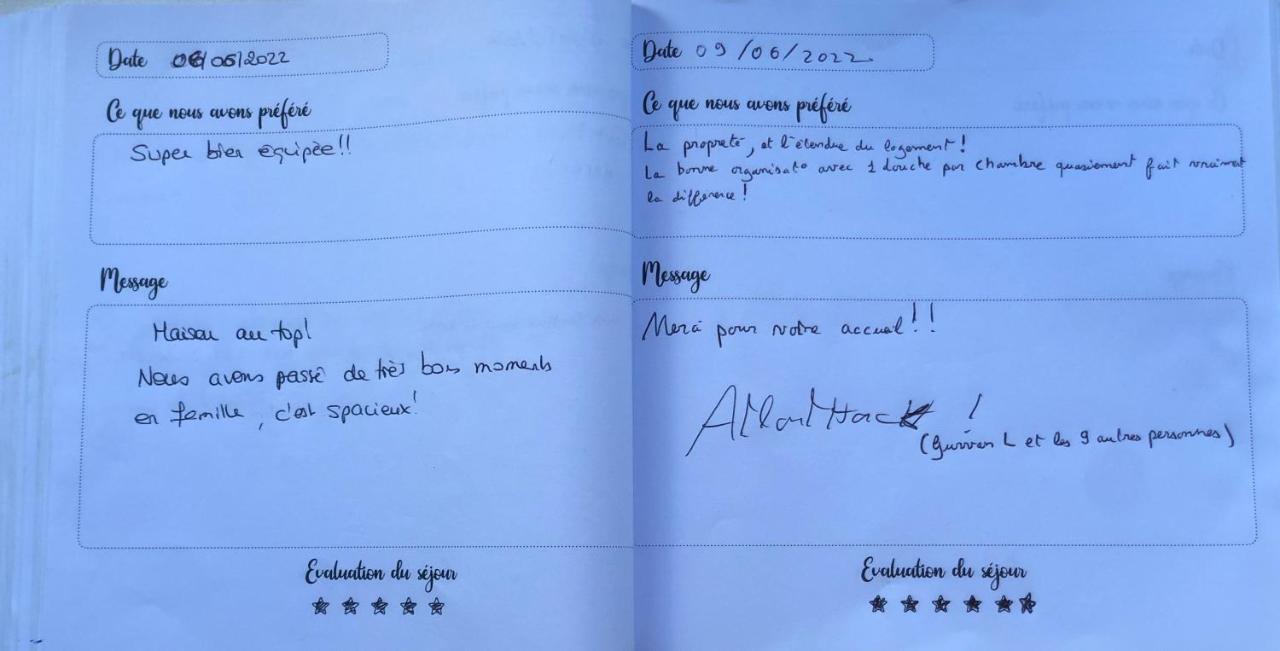 Date 06/06/2022
Ce que nous avons préféré
Super bien équipée!!
Message
Maison au top!
Nous avons passé de très bons moments
en famille, c'est spacieux!
Evaluation du séjour
Date 09/06/2022
Ce que nous avons préféré
La propreté, et l'étendue du logement!
La bonne organisat° avec 1 douche par chambre quasiement fait vraiment
la différence!
Message
Merci pour votre accueil!!
(L et les 9 autres personnes)
Evaluation du séjour